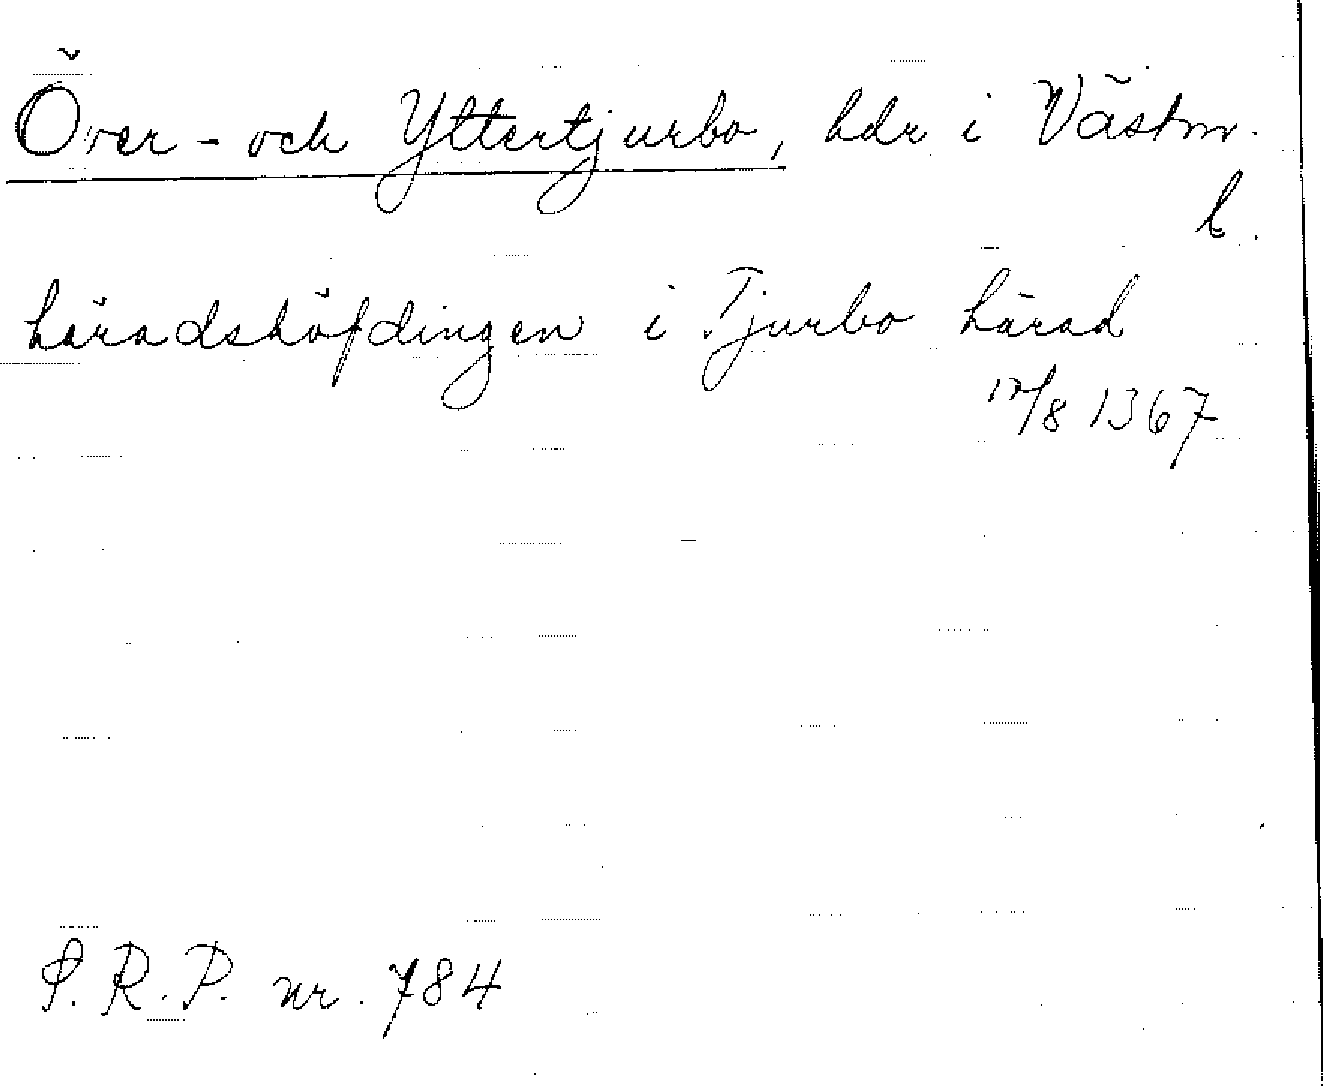 Över- och Yttertjurbo, hdr i Västm.
l.
häradshöfdingen i Tjurbo härad
17/8 1367
S.R.P. nr. 784